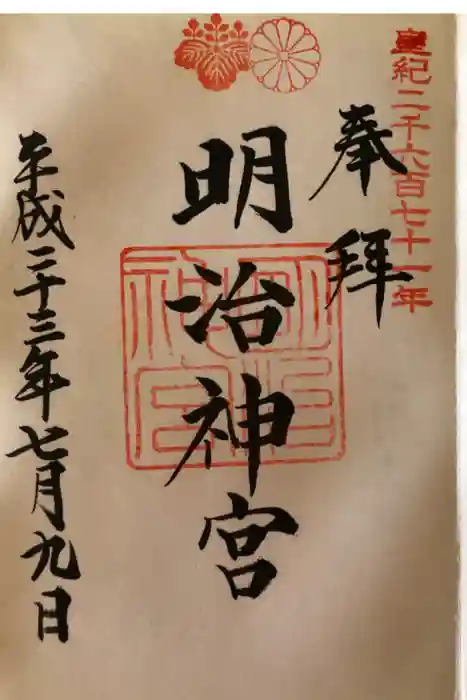 皇紀二千六百七十一年
奉拝
明治神宮
明治
神宮
平成二十三年七月九日